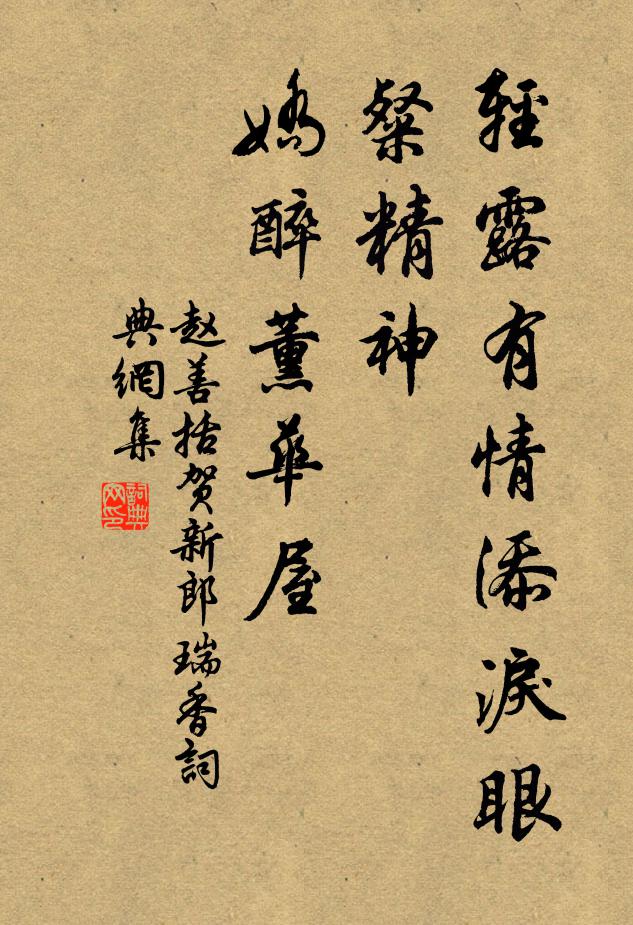 輕露有情添淚眼
粲精神
嬌醉薰華屋
赵善括贺新郎瑞香詞
典網集
詞典网印